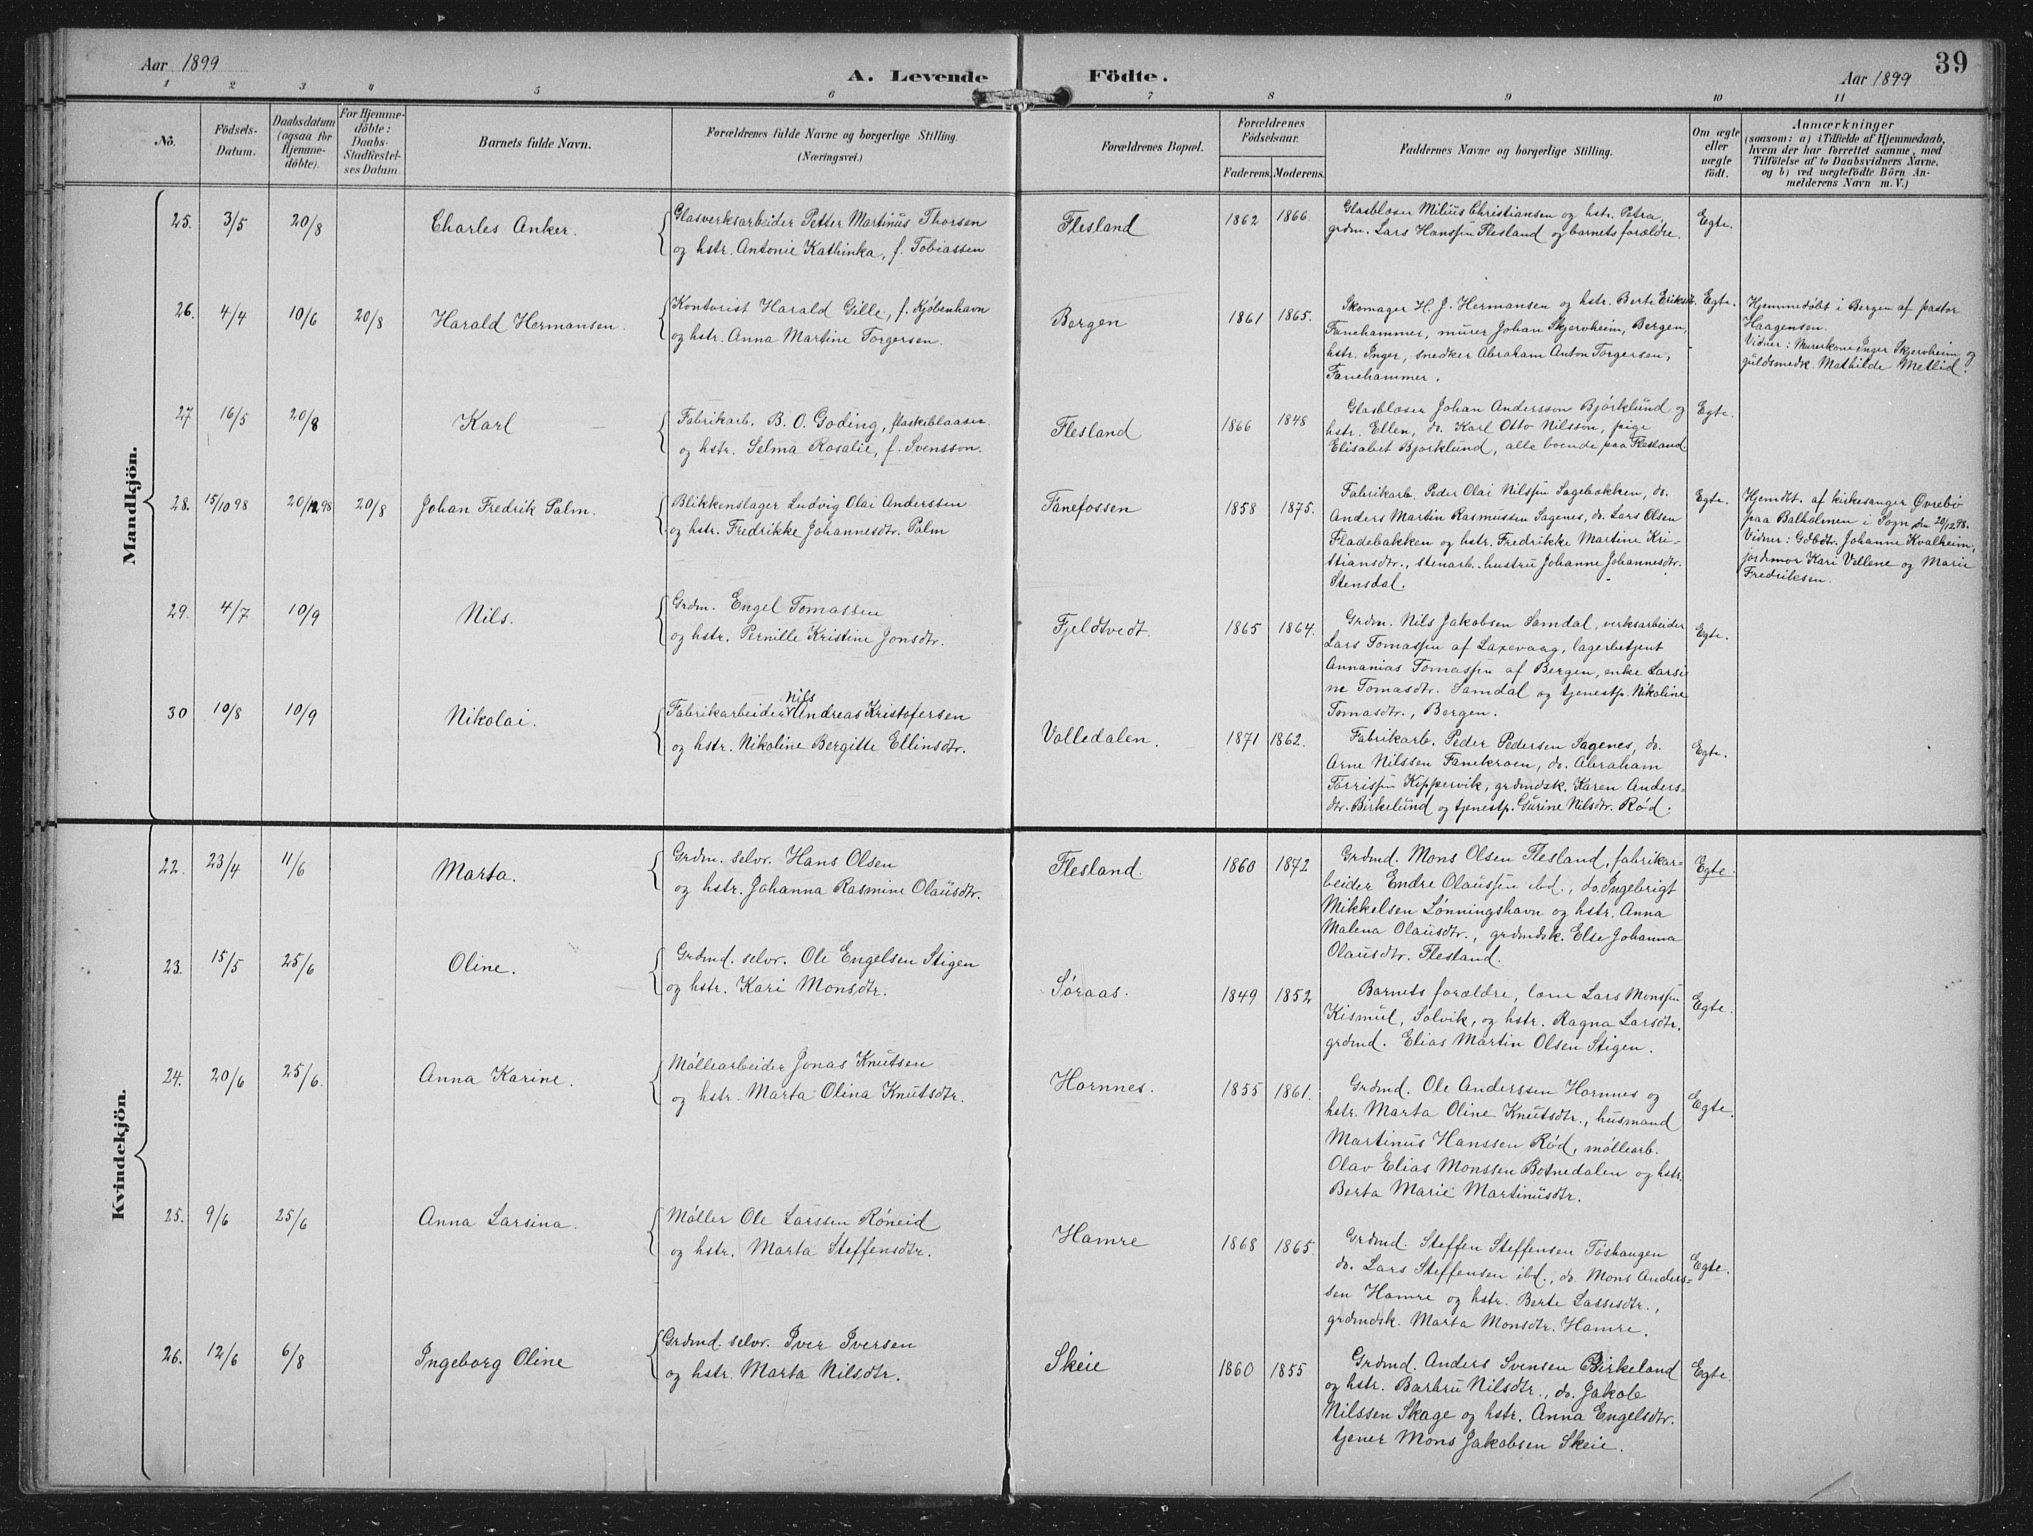 Aar 1899
A. Levende Födte.
39
Aar 1899
1 2 3 4 5 6 7 8 9 10 11
No.
Födsels-Datum.
Daabsdatum (ogsaa for Hjemmedöbte).
For Hjemmedöbte: Daabs-Stadfæstelses Datum.
Barnets fulde Navn.
Forældrenes fulde Navne og borgerlige Stilling.
(Næringsvei.)
Forældrenes Bopæl.
Forældrenes Födselsaar.
Faderens. Moderens.
Faddernes Navne og borgerlige Stilling.
Om ægte eller uægte födt.
Anmærkninger
(saasom: a) i Tilfælde af Hjemmedaab,
hvem der har forrettet samme, med
Tilföielse af to Daabsvidners Navne.
og b) ved uægtefödte Börn An-
melderens Navn m. V.)
Mandkjön.
25. 3/5 20/8 Charles Anker.
Glasverksarbeider Petter Martinus Thorsen
og hstr. Antonie Kathinka, f. Tobiassen
Flesland 1862 1866.
Glasblæser Milius Christiansen og hstr. Petra,
grdm. Lars Hanssen Flesland og barnets forældre.
Egte.
26. 4/4 10/6 20/8 Harald Hermansen.
Kontorist Harald Gille, f. Kjøbenhavn
og hstr. Anna Martine Torgersen.
Bergen 1861 1865.
Skomager H. J. Hermansen og hstr. Berte Eriksdt.
Fanehammer, murer Johan Skjervheim, Bergen,
hstr. Inger, snedker Abraham Anton Torgersen,
Fanehammer.
Egte.
Hjemmedøbt i Bergen af pastor
Haagensen.
Vidner: Murerkone Inger Skjervheim og
guldsmedk. Mathilde Metlid.
27 16/5 20/8 Karl
Fabrikarb. B. O. Goding, flaskeblaaser
og hstr. Selma Rosalie, f. Svensson.
Flesland 1866 1848
Glasblæser Johan Andersson Bjørklund og
hstr. Ellen, do. Karl Otto Nilsson, pige
Elisabet Bjørklund, alle boende paa Flesland.
Egte.
28. 15/10 98 20/12 98 20/8 Johan Fredrik Palm.
Blikkenslager Ludvig Olai Anderssen
og hstr. Fredrikke Johannesdtr. Palm
Fanefossen 1858 1875.
Fabrikarb. Peder Olai Nilssen Sagebakken, do.
Anders Martin Rasmussen Sagenes, do. Lars Olsen
Fladebakken og hstr. Fredrikke Martine Kri-
stiansdtr., stenarb. hustru Johanne Johannesdtr.
Stensdal.
Egte.
Hjemdt. af kirkesanger Øvrebø
paa Balholmen i Sogn den 20/12 98.
Vidner: Gdbdtr. Johanne Kvalheim,
jordmor Kari Vellene og Marie
Fredriksen.
29. 4/7 10/9 Nils.
Grdm. Engel Tomassen
og hstr. Pernille Kristine Jonsdtr.
Fjeldtvedt. 1865 1864.
Grdm. Nils Jakobsen Samdal, verksarbeider
Lars Tomassen af Laxevaag, lagerbetjent
Annanias Tomassen af Bergen, enke Larsi-
ne Tomasdtr. Samdal og tjenestp. Nikoline
Tomasdtr., Bergen.
Egte.
30 10/8 10/9 Nikolai.
Fabrikarbeider Nils Andreas Kristofersen
og hstr. Nikoline Bergitte Ellinsdtr.
Valledalen. 1871 1862.
Fabrikarb. Peder Pedersen Sagenes, do.
Arne Nilssen Fanekroen, do. Abraham
Torrissen Kippervik, grdmdsk. Karen Anders-
dtr. Birkelund og tjenestp. Gurine Nilsdtr. Rød.
Egte.
Kvindekjön.
22. 23/4 11/6 Marta.
Grdm. selvr. Hans Olsen
og hstr. Johanna Rasmine Olausdtr.
Flesland. 1860 1872
Grdmd. Mons Olsen Flesland, fabrikar-
beider Endre Olaussen ibd., do. Ingebrigt
Mikkelsen Lønningshavn og hstr. Anna
Malena Olausdtr., grdmdsk. Else Johanna
Olausdtr. Flesland.
Egte.
23. 15/5 25/6 Oline.
Grdmd. selvr. Ole Engelsen Stigen
og hstr. Kari Monsdtr.
Søraas. 1849 1852
Barnets forældre, lærer Lars Monssen
Kismul, Solvik, og hstr. Ragna Larsdtr.
grdmd. Elias Martin Olsen Stigen.
Egte.
24. 20/6 25/6. Anna Karine.
Møllearbeider Jonas Knutsen
og hstr. Marta Olina Knutsdtr.
Hornnes. 1855 1861.
Grdmd. Ole Anderssen Hornnes og
hstr. Marta Oline Knutsdtr., husmand
Martinus Hanssen Rød, møllearb.
Olav Elias Monssen Botnedalen og hstr.
Berta Marie Martinusdtr.
Egte.
25. 9/6 25/6 Anna Larsina.
Møller Ole Larssen Røneid
og hstr. Marta Steffensdtr.
Hamre 1868 1865.
Grdmd. Steffen Steffensen Tøshaugen
do. Lars Steffensen ibd., do. Mons Anders-
sen Hamre og hstr. Berte Lassesdtr.,
grdmdsk. Marta Monsdtr. Hamre.
Egte.
26. 12/6 6/8 Ingeborg Oline
Grdmd. selvr. Iver Iversen
og hstr. Marta Nilsdtr.
Skeie 1860 1855
Grdmd. Anders Svensen Birkeland
og hstr. Barbru Nilsdtr., do. Jakob
Nilssen Skage og hstr. Anna Engelsdtr.
tjener Mons Jakobsen Skeie.
Egte.